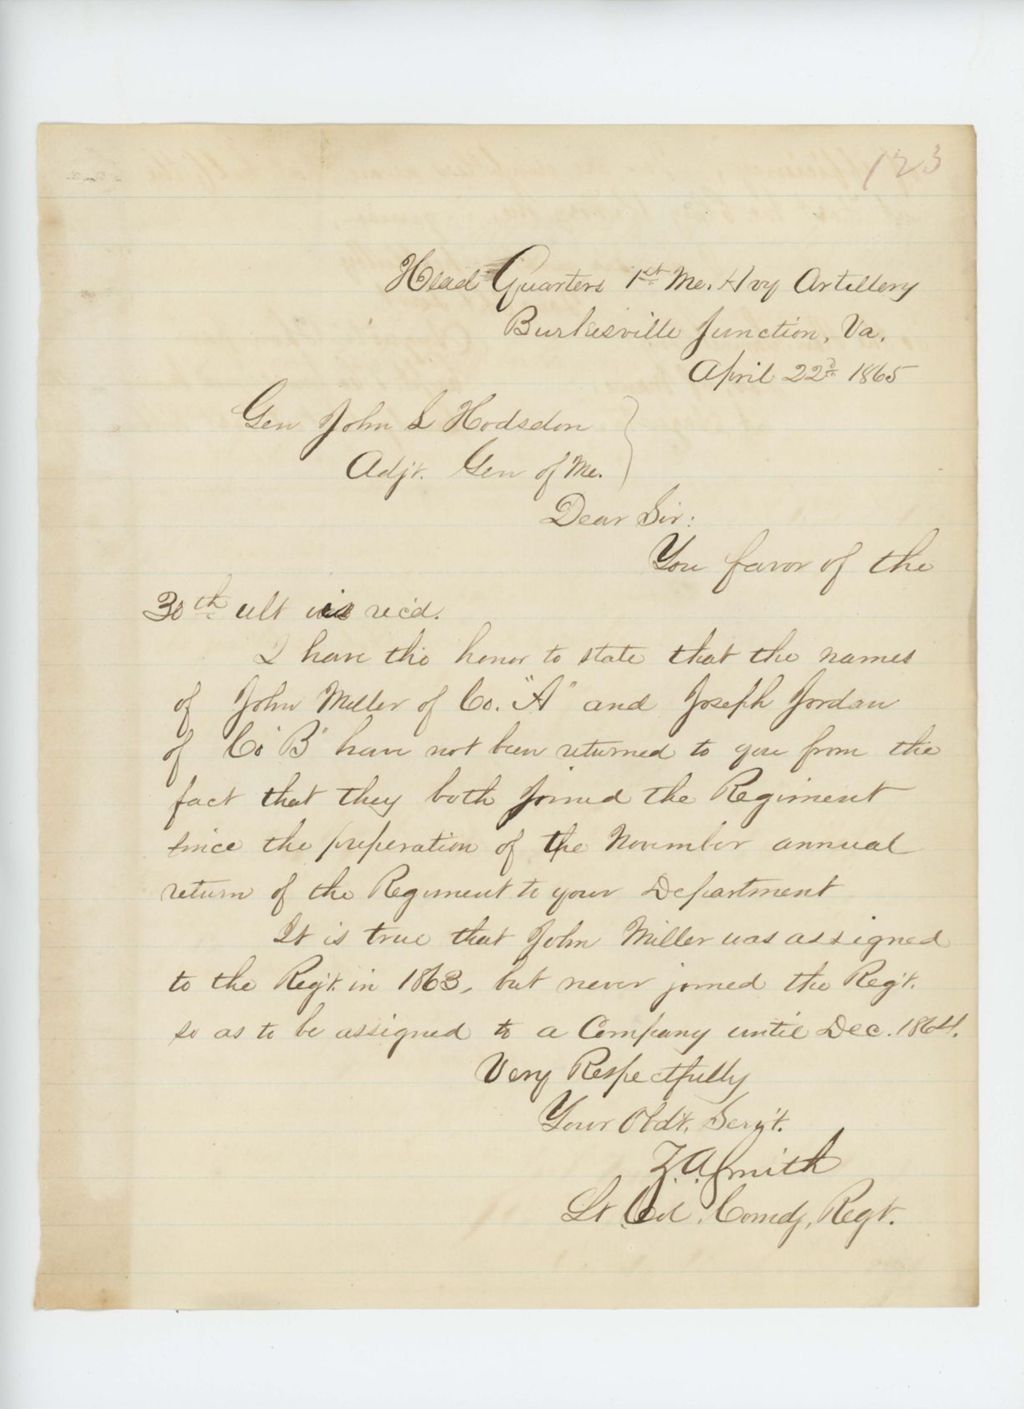 123
Head Quarters 1st Me. Hvy Artillery
Burkesville Junction, Va.
April 22d 1865
Gen John L Hodsdon
Adjt. Gen of Me.
Dear Sir:
You favor of the
30th ult is rec'd.
I have the honor to state that the names
of John Miller of Co. "A" and Joseph Jordan
of Co "B" have not been returned to you from the
fact that they both joined the Regiment
since the preperation of the November annual
return of the Regiment to your Department
It is true that John Miller was assigned
to the Reg't. in 1863, but never joined the Reg't.
so as to be assigned to a Company until Dec. 1864.
Very Respectfully
Your Obdt. Serv't.
Z. A. Smith
Lt. Col. Comdg. Regt.